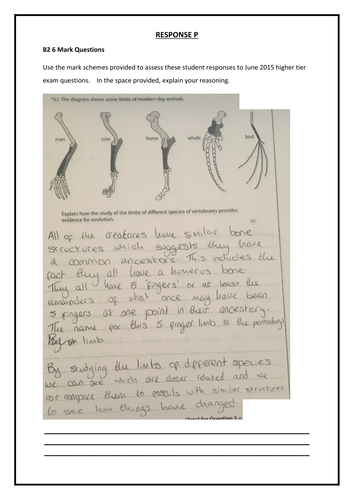 RESPONSE P
B2 6 Mark Questions
Use the mark schemes provided to assess these student responses to June 2015 higher tier
exam questions. In the space provided, explain your reasoning.
*(c) The diagram shows some limbs of modern-day animals.
man cow horse whale bird
Explain how the study of the limbs of different species of vertebrates provides
evidence for evolution.
(6)
All of the creatores have similar bone
structures which suggests they have
a common ancestors. This includes the
fact they all have a humerus bone.
They all have 5 fingers or at least the
remainders of what once may have been
5 fingers at one point in their ancestery.
The name for this 5 finger limb is the
limb.
By studying the limbs of different species
we can see which are closer related and we
can compare them to fossils with similar structures
to see how things have changed.
(Total for Question 5